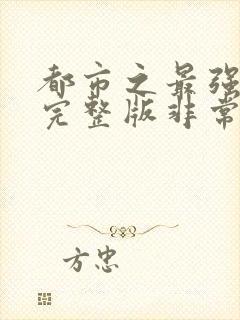 都市之最强
完整版非常
方忠